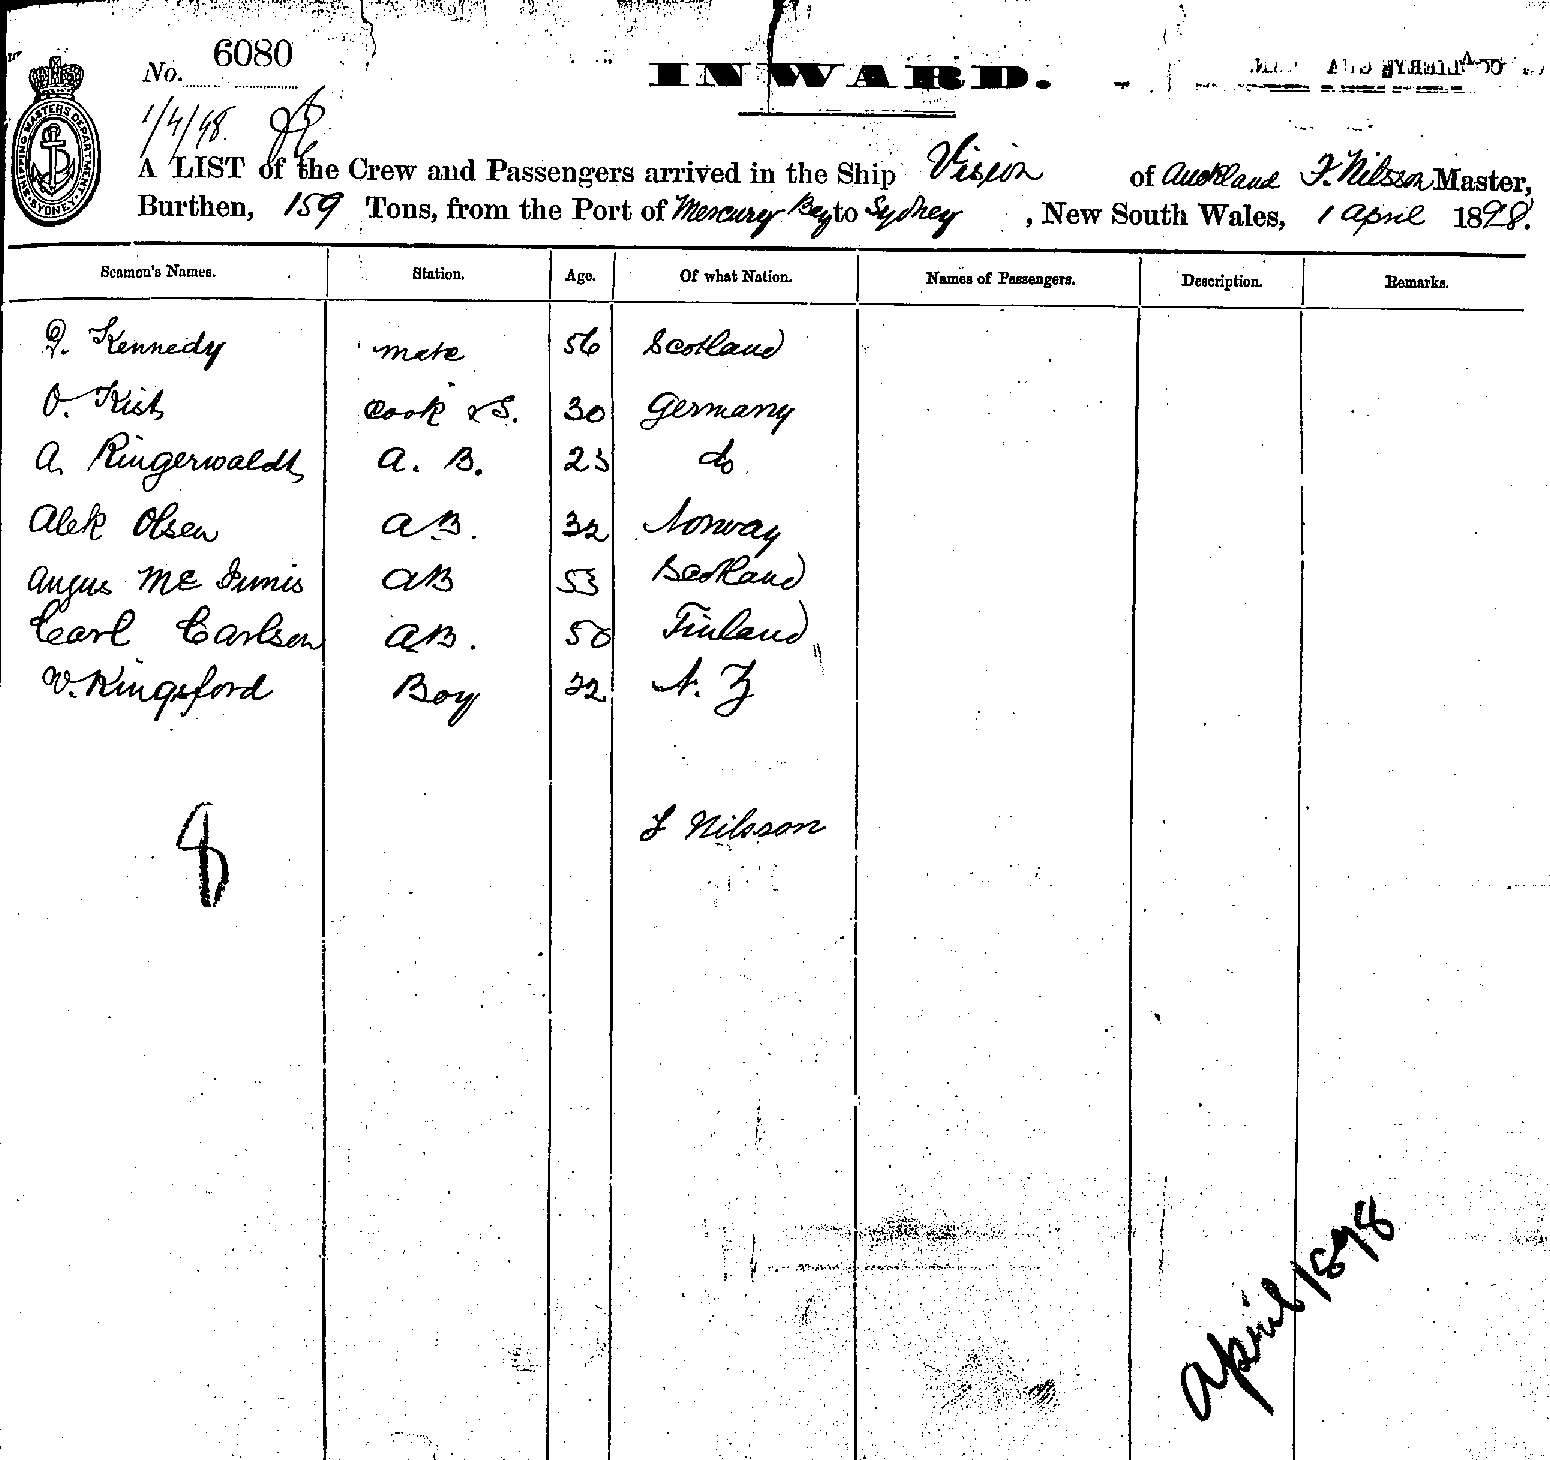 No. 6080
INWARD.
1/4/98.
SHIPPING MASTERS DEPARTMENT SYDNEY
A LIST of the Crew and Passengers arrived in the Ship Vision of Auckland F. Nilsson Master,
Burthen, 159 Tons, from the Port of Mercury Bay to Sydney, New South Wales, 1 April 1898.
Seamen's Names. Station. Age. Of what Nation. Names of Passengers. Description. Remarks.
Kennedy mate 56 Scotland
O. Kist Cook & S. 30 Germany
A. Ringerwaldt A. B. 23 do
Alek Olsen AB. 32 Norway
Angus Mc Innis AB 53 Scotland
Carl Carlson AB. 50 Finland
W. Kingsford Boy 22 N. Z
8
F Nilsson
April 1898